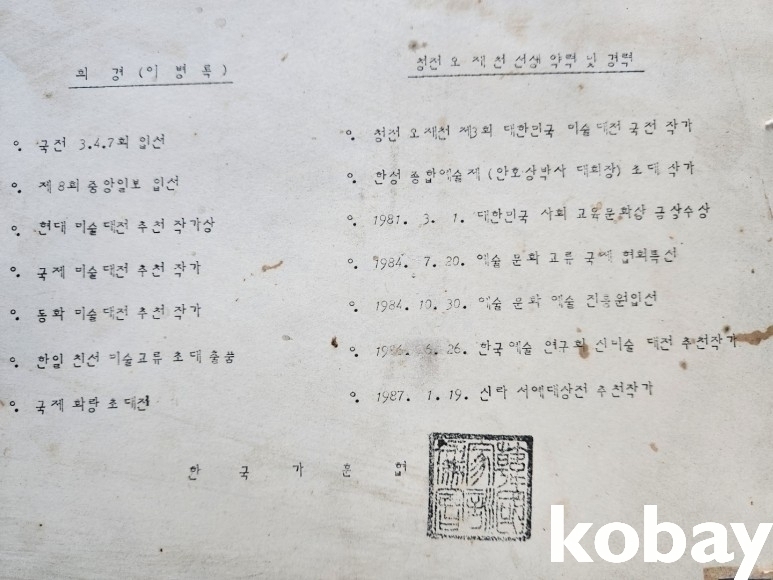 희 경 (이 병 록)
○. 국전 3.4.7회 입선
○. 제 8회 중앙일보 입선
○. 현대 미술대전 추천 작가상
○. 국제 미술대전 추천 작가
○. 동화 미술대전 추천 작가
○. 한일 친선 미술교류 초대 출품
○. 국제 화랑 초대전
청전 오 재천 선생 약력 및 경력
○. 청전 오재천 제3회 대한민국 미술대전 국전 작가
○. 한성 종합예술제 (안호상박사 대회장) 초대 작가
○. 1981. 3. 1. 대한민국 사회 교육문화상 금상수상
○. 1984. 7. 20. 예술 문화 교류 국제 협회특선
○. 1984. 10. 30. 예술 문화 예술 진흥원입선
○. 6. 26. 한국예술 연구회 신미술 대전 추천작가
○. 1987. 1. 19. 신라 서예대상전 추천작가
한 국 가 훈 협
kobay